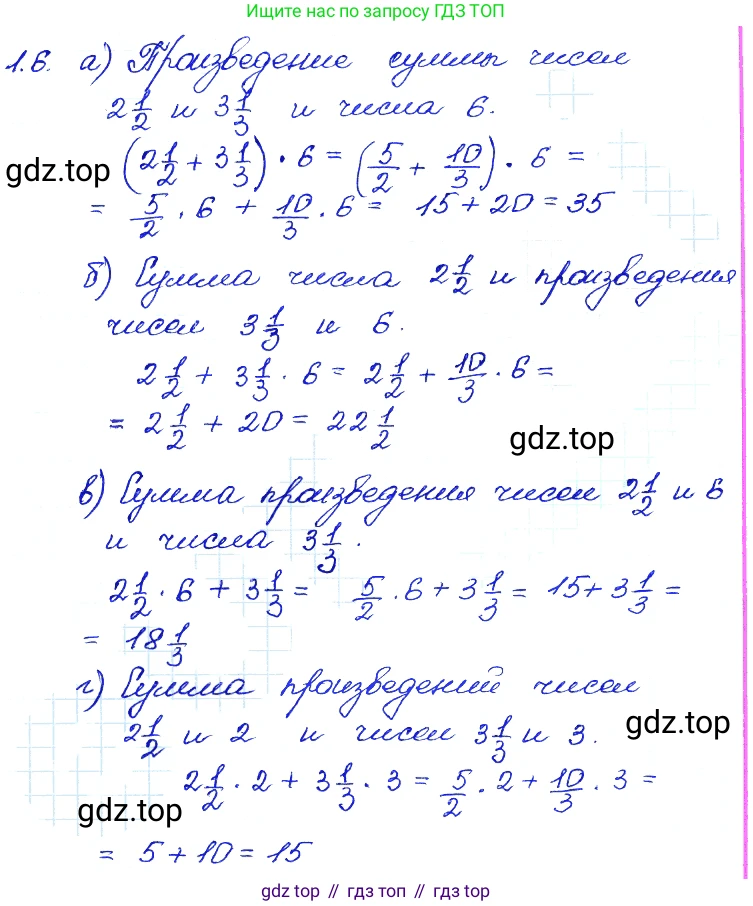 Ищите нас по запросу ГДЗ ТОП
1.6. а) Произведение суммы чисел
2 1/2 и 3 1/3 и числа 6.
(2 1/2 + 3 1/3) · 6 = (5/2 + 10/3) · 6 =
gdz.top
= 5/2 · 6 + 10/3 · 6 = 15 + 20 = 35
б) Сумма числа 2 1/2 и произведения
чисел 3 1/3 и 6.
2 1/2 + 3 1/3 · 6 = 2 1/2 + 10/3 · 6 =
= 2 1/2 + 20 = 22 1/2
gdz.top
в) Сумма произведения чисел 2 1/2 и 6
и числа 3 1/3.
2 1/2 · 6 + 3 1/3 = 5/2 · 6 + 3 1/3 = 15 + 3 1/3 =
= 18 1/3
г) Сумма произведений чисел
2 1/2 и 2 и чисел 3 1/3 и 3.
gdz.top
2 1/2 · 2 + 3 1/3 · 3 = 5/2 · 2 + 10/3 · 3 =
gdz.top
= 5 + 10 = 15
gdz top // гдз топ // gdz.top // гдз.топ